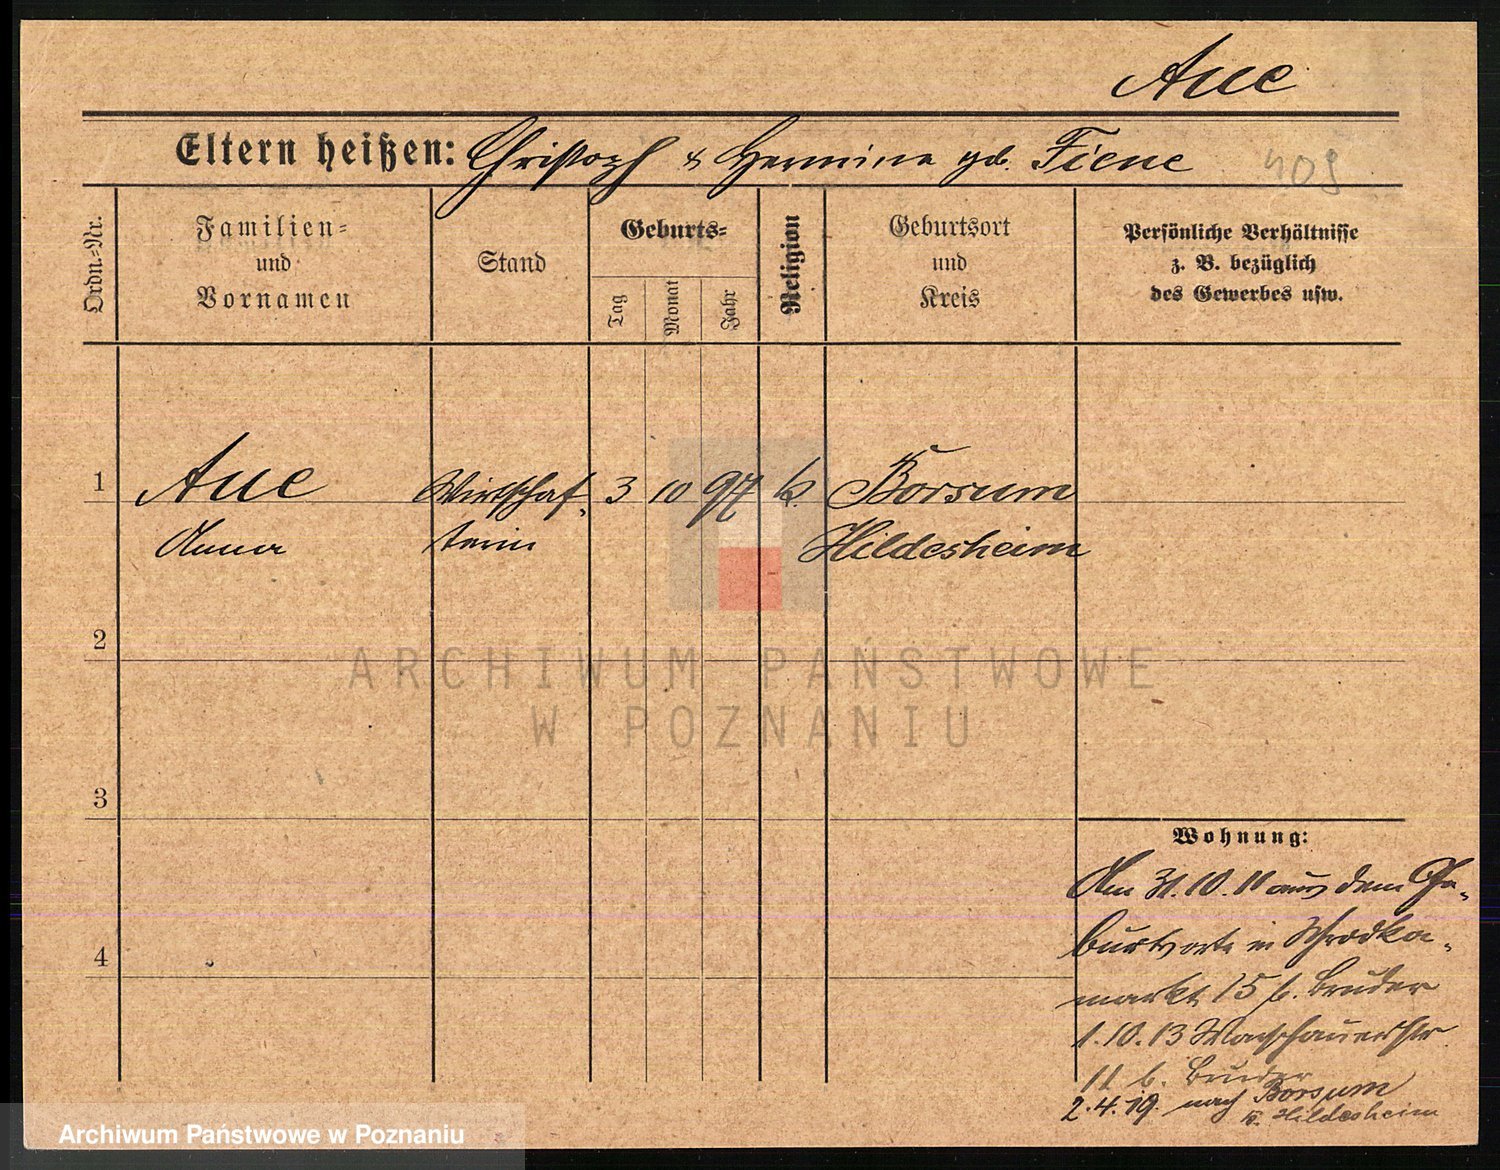 Aue
Eltern heißen: Christoph & Hermine geb. Fiene
409
Ordn.-Nr.
Familien-
und
Vornamen
Stand
Geburts-
Tag
Monat
Jahr
Religion
Geburtsort
und
Kreis
Persönliche Verhältnisse
z. B. bezüglich
des Gewerbes usw.
1
Aue
Anna
Wirtschaf-
terin
3
10
97
k.
Borsum
Hildesheim
2
3
4
Wohnung:
Am 31.10.11 aus dem Ge-
burtsorte in Schrodka-
markt 15 b. Bruder
1.10.13 Warschauerstr.
11 b. Bruder
2.4.19. nach Borsum
Kr. Hildesheim
ARCHIWUM PAŃSTWOWE
W POZNANIU
Archiwum Państwowe w Poznaniu